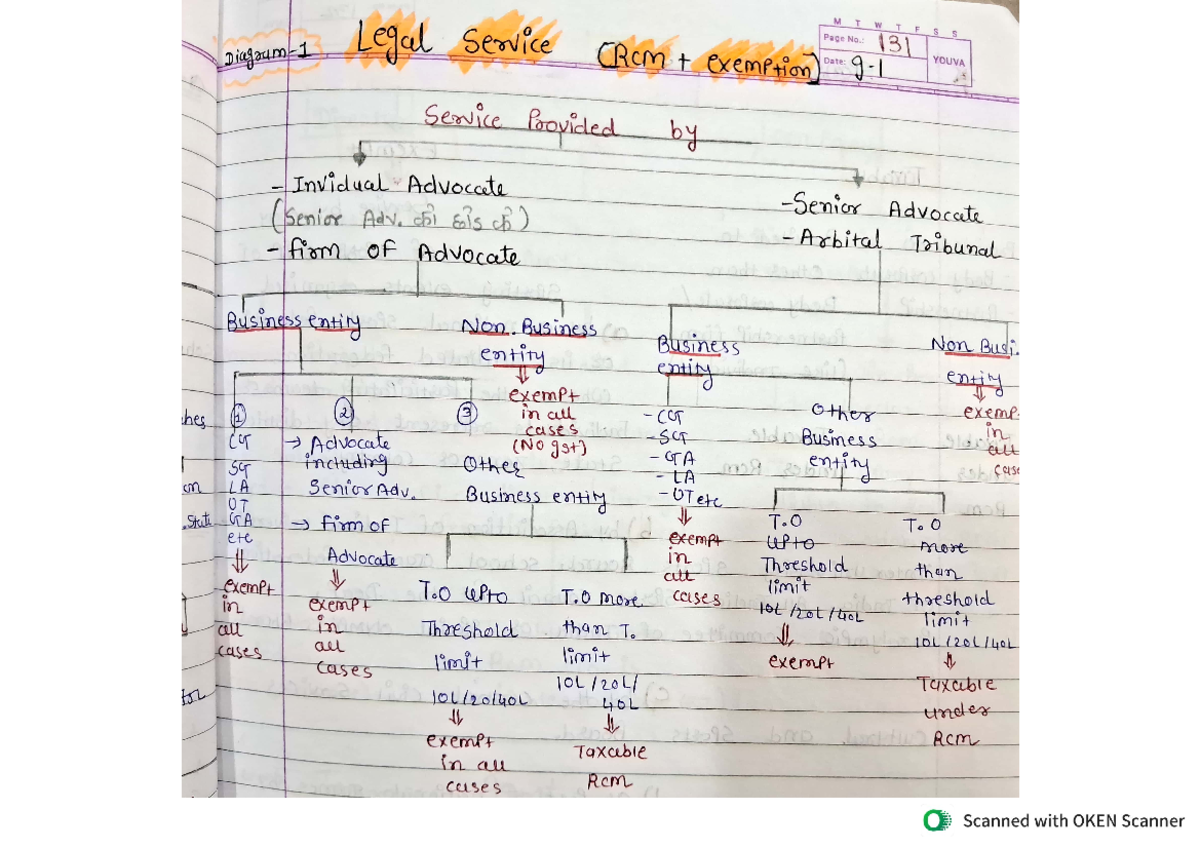 Diagram-1
Legal Service (RCM + exemption)
M T W T F S S
Page No.: 131
Date: 9-1
YOUVA
Service Provided by
- Invidual Advocate
(Senior Adv. को छोड़ के)
- firm OF Advocate
- Senior Advocate
- Arbital Tribunal
Business entity
Non Business
entity
⇓
exempt
in all
cases
(No gst)
①
CG
SG
LA
OT
GA
etc
⇓
exempt
in
all
cases
②
→ Advocate
including
Senior Adv.
→ Firm OF
Advocate
⇓
exempt
in
all
cases
③
Other
Business entity
T.O upto
Threshold
limit
10L/20/40L
⇓
exempt
in all
cases
T.O more
than T.
limit
10L/20L/
40L
⇓
Taxable
Rcm
Business
entity
- CG
- SG
- GA
- LA
- OT etc
⇓
exempt
in
all
cases
Other
Business
entity
T.O
upto
Threshold
limit
10L/20L/40L
⇓
exempt
T.O
more
than
threshold
limit
10L/20L/40L
⇓
Taxable
under
Rcm
Non Busi.
entity
⇓
exemp
in
all
case
Scanned with OKEN Scanner